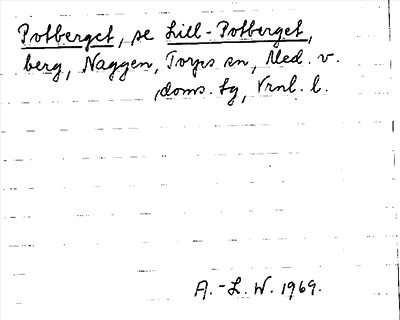 Potberget, se Lill-Potberget,
berg, Naggen, Torps sn, Med. v.
doms. tg, Vrnl. l.
A.-L. W. 1969.